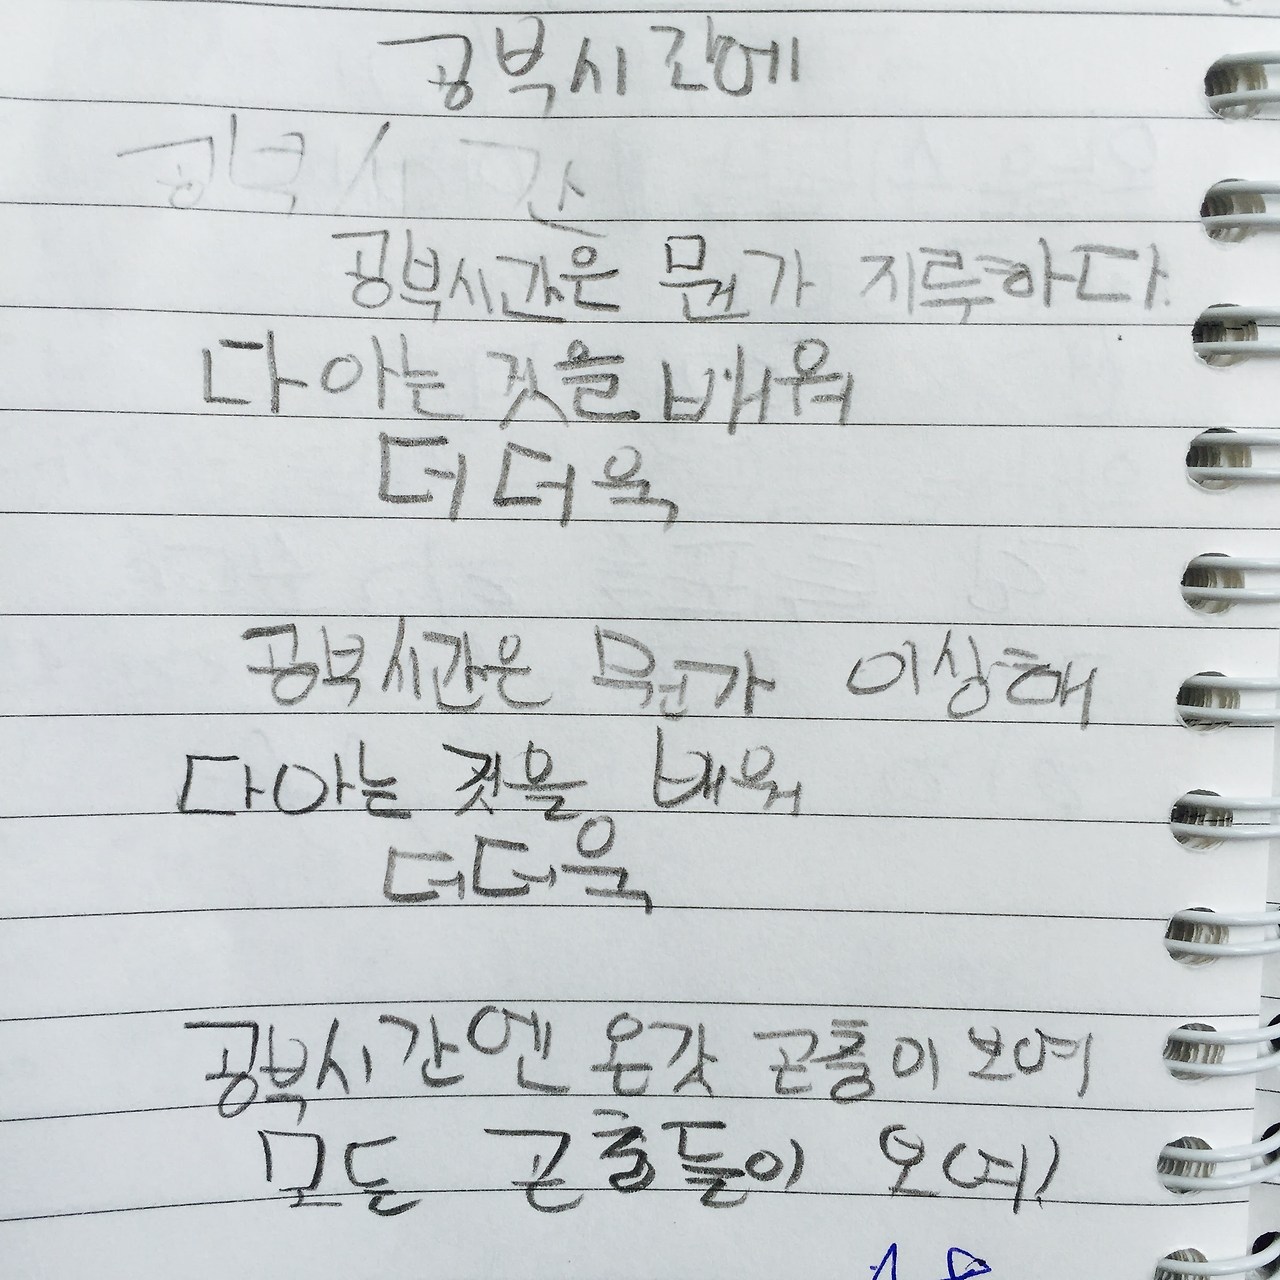 공부시간에
공부시간
공부시간은 뭔가 지루하다.
다아는 것을 배워
더 더욱
공부시간은 뭔가 이상해
다아는 것을 배워
더더욱
공부시간엔 온갖 곤충이 보여
모든 곤충들이 보여!